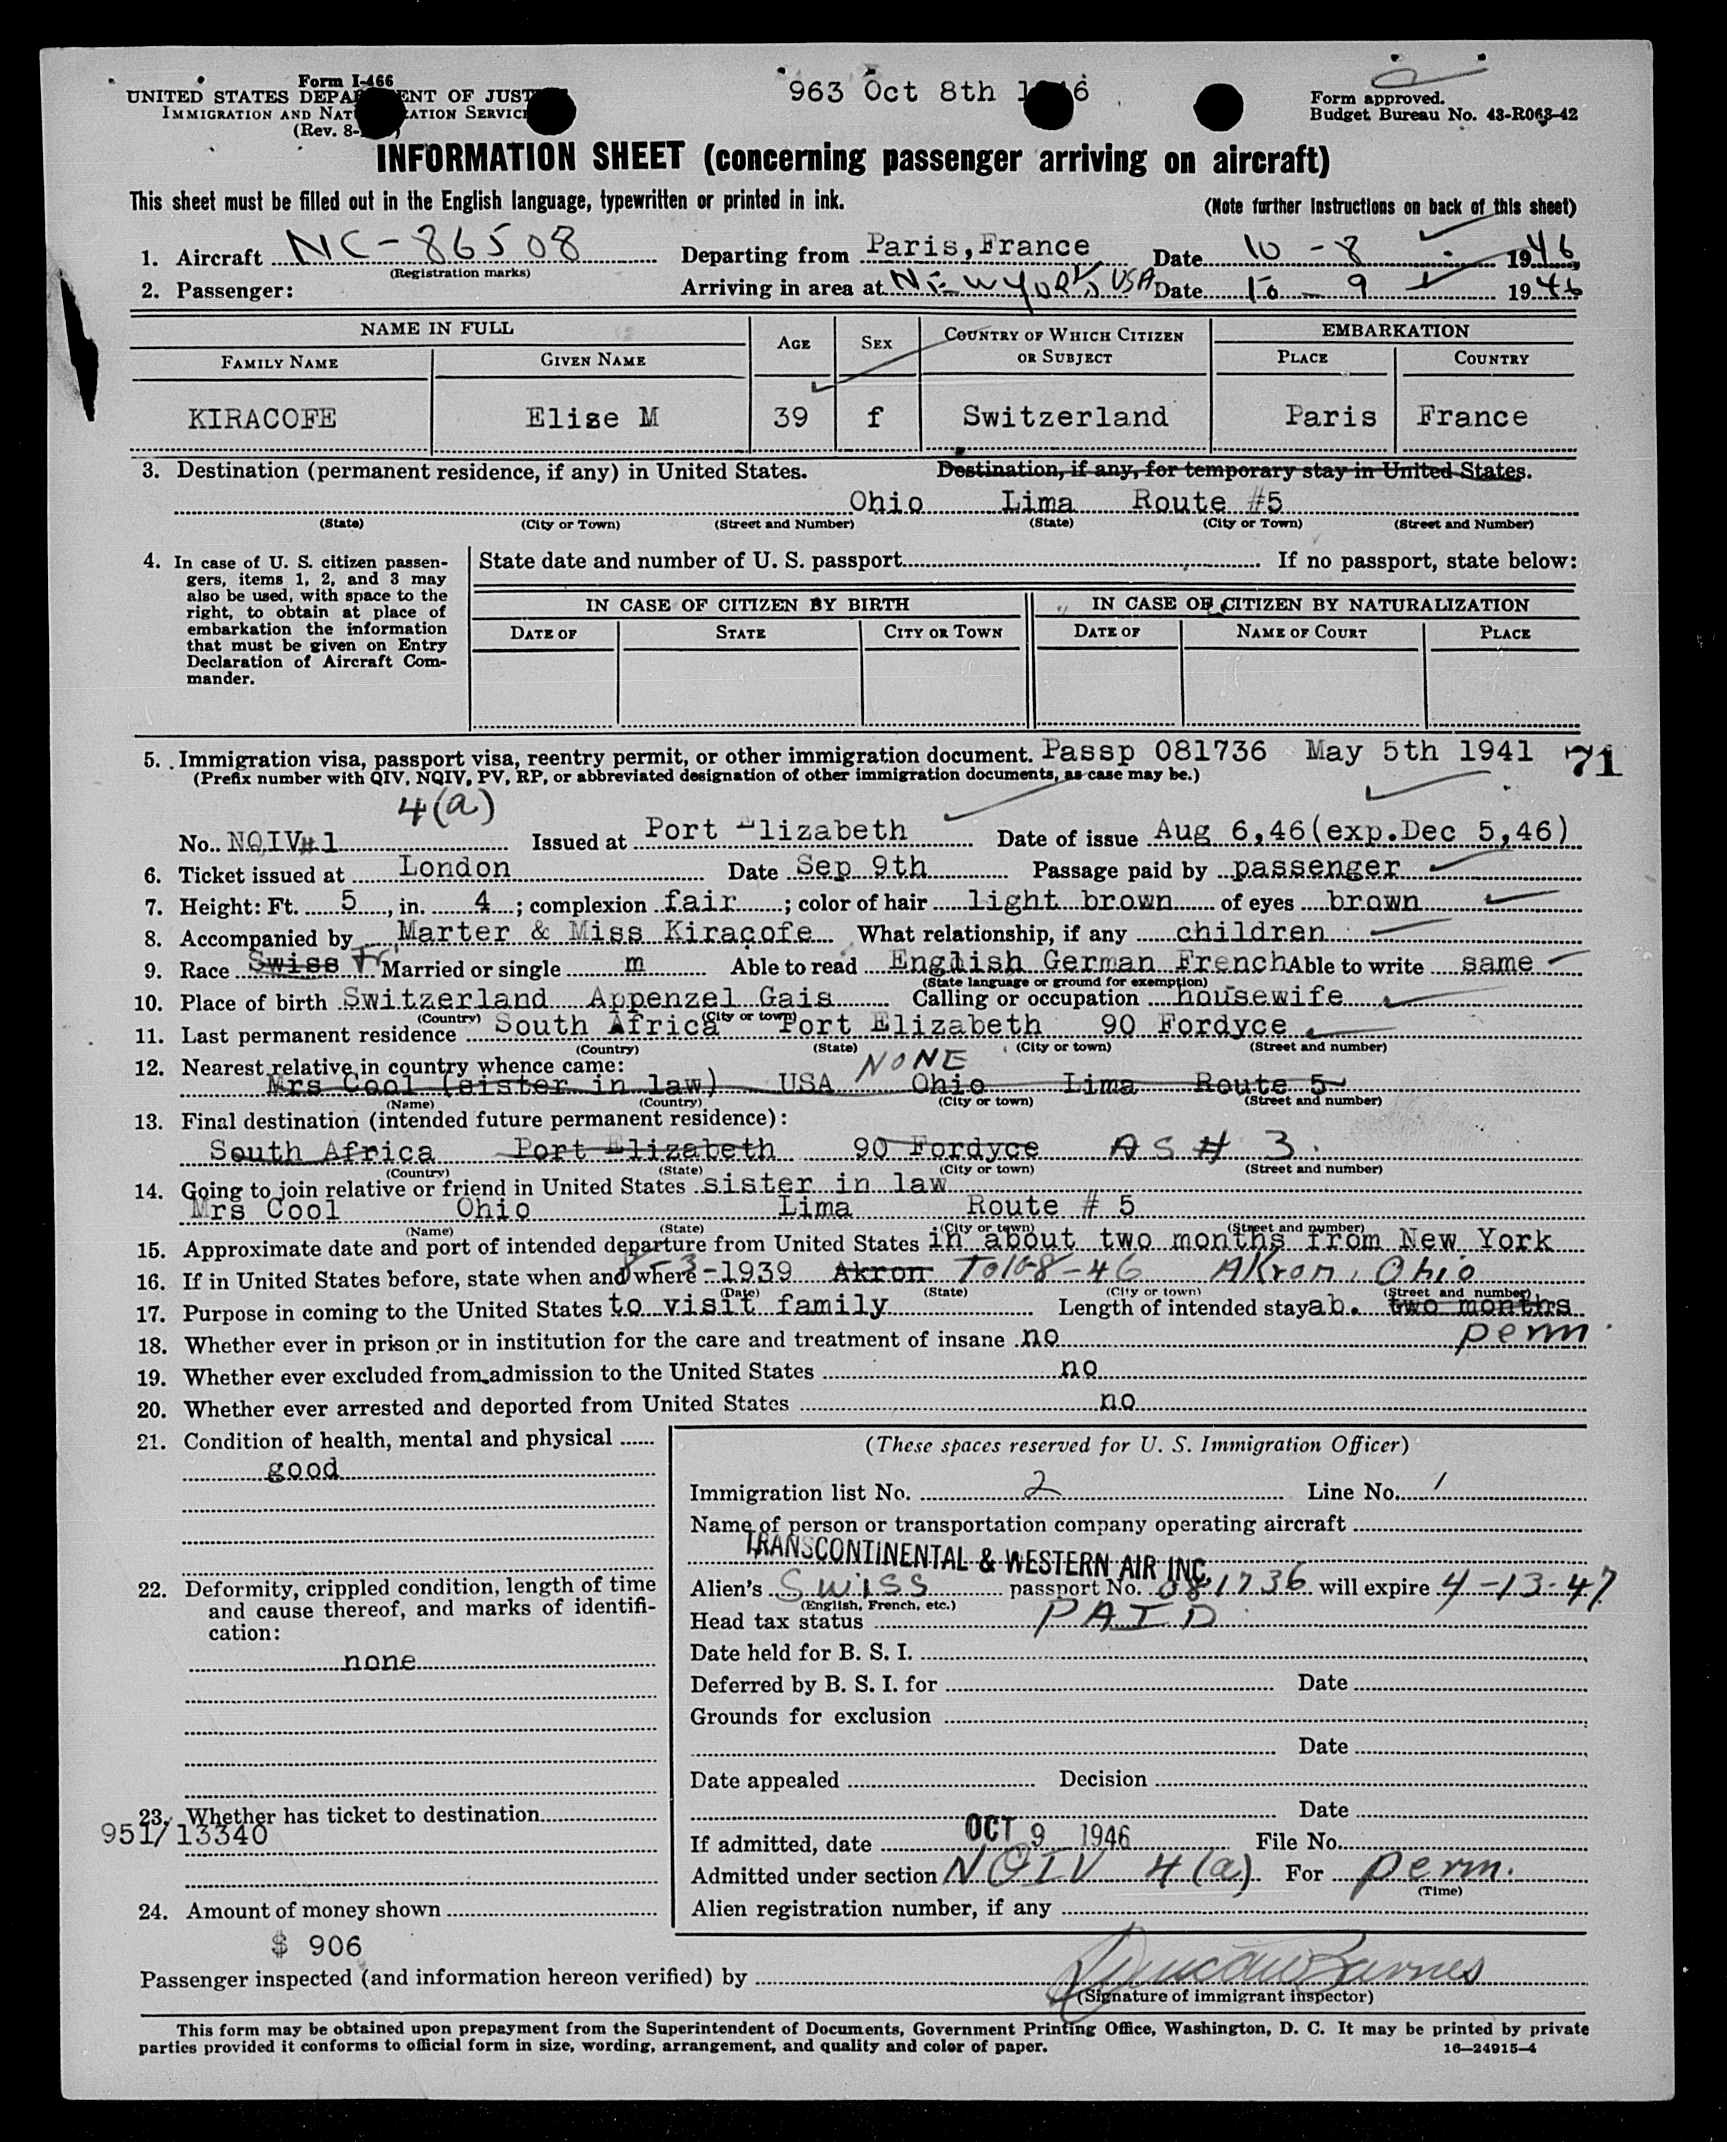 Form I-466
UNITED STATES DEPA ENT OF JUST
IMMIGRATION AND NAT ATION SERVICE
(Rev. 8-
963 Oct 8th 1 6
Form approved.
Budget Bureau No. 43-R063-42
INFORMATION SHEET (concerning passenger arriving on aircraft)
This sheet must be filled out in the English language, typewritten or printed in ink.
(Note further instructions on back of this sheet)
1. Aircraft NC-86508 Departing from Paris, France Date 10 - 8 1946
(Registration marks)
2. Passenger: Arriving in area at New York, USA Date 10 - 9 1946
NAME IN FULL AGE SEX COUNTRY OF WHICH CITIZEN OR SUBJECT EMBARKATION
FAMILY NAME GIVEN NAME PLACE COUNTRY
KIRACOFE Elise M 39 f Switzerland Paris France
3. Destination (permanent residence, if any) in United States. Destination, if any, for temporary stay in United States.
Ohio Lima Route #5
(State) (City or Town) (Street and Number) (State) (City or Town) (Street and Number)
4. In case of U. S. citizen passengers, items 1, 2, and 3 may also be used, with space to the right, to obtain at place of embarkation the information that must be given on Entry Declaration of Aircraft Commander.
State date and number of U. S. passport If no passport, state below:
IN CASE OF CITIZEN BY BIRTH IN CASE OF CITIZEN BY NATURALIZATION
DATE OF STATE CITY OR TOWN DATE OF NAME OF COURT PLACE
5. Immigration visa, passport visa, reentry permit, or other immigration document. Passp 081736 May 5th 1941 71
(Prefix number with QIV, NQIV, PV, RP, or abbreviated designation of other immigration documents, as case may be.)
4(a)
No. NQIV#1 Issued at Port Elizabeth Date of issue Aug 6,46(exp.Dec 5,46)
6. Ticket issued at London Date Sep 9th Passage paid by passenger
7. Height: Ft. 5, in. 4; complexion fair; color of hair light brown of eyes brown
8. Accompanied by Marter & Miss Kiracofe What relationship, if any children
9. Race Swiss Fr. Married or single m Able to read English German French Able to write same
(State language or ground for exemption)
10. Place of birth Switzerland Appenzel Gais Calling or occupation housewife
(Country) (City or town)
11. Last permanent residence South Africa Port Elizabeth 90 Fordyce
(Country) (State) (City or town) (Street and number)
12. Nearest relative in country whence came: NONE
Mrs Cool (sister in law) USA Ohio Lima Route 5
(Name) (Country) (City or town) (Street and number)
13. Final destination (intended future permanent residence):
South Africa Port Elizabeth 90 Fordyce AS # 3.
(Country) (State) (City or town) (Street and number)
14. Going to join relative or friend in United States sister in law
Mrs Cool Ohio Lima Route # 5
(Name) (State) (City or town) (Street and number)
15. Approximate date and port of intended departure from United States in about two months from New York
16. If in United States before, state when and where 8-3-1939 Akron To 10-8-46 Akron, Ohio
(Date) (State) (City or town) (Street and number)
17. Purpose in coming to the United States to visit family Length of intended stay ab. two months
perm.
18. Whether ever in prison or in institution for the care and treatment of insane no
19. Whether ever excluded from admission to the United States no
20. Whether ever arrested and deported from United States no
21. Condition of health, mental and physical
good
22. Deformity, crippled condition, length of time and cause thereof, and marks of identification:
none
23. Whether has ticket to destination
951/13340
24. Amount of money shown
$ 906
(These spaces reserved for U. S. Immigration Officer)
Immigration list No. 2 Line No. 1
Name of person or transportation company operating aircraft
TRANSCONTINENTAL & WESTERN AIR INC.
Alien's Swiss passport No. 081736 will expire 4-13-47
(English, French, etc.)
Head tax status PAID
Date held for B. S. I.
Deferred by B. S. I. for Date
Grounds for exclusion
Date
Date appealed Decision
Date
If admitted, date OCT 9 1946 File No.
Admitted under section NQIV 4(a) For perm.
(Time)
Alien registration number, if any
Passenger inspected (and information hereon verified) by Duncan Barnes
(Signature of immigrant inspector)
This form may be obtained upon prepayment from the Superintendent of Documents, Government Printing Office, Washington, D. C. It may be printed by private
parties provided it conforms to official form in size, wording, arrangement, and quality and color of paper.
16—24915-4